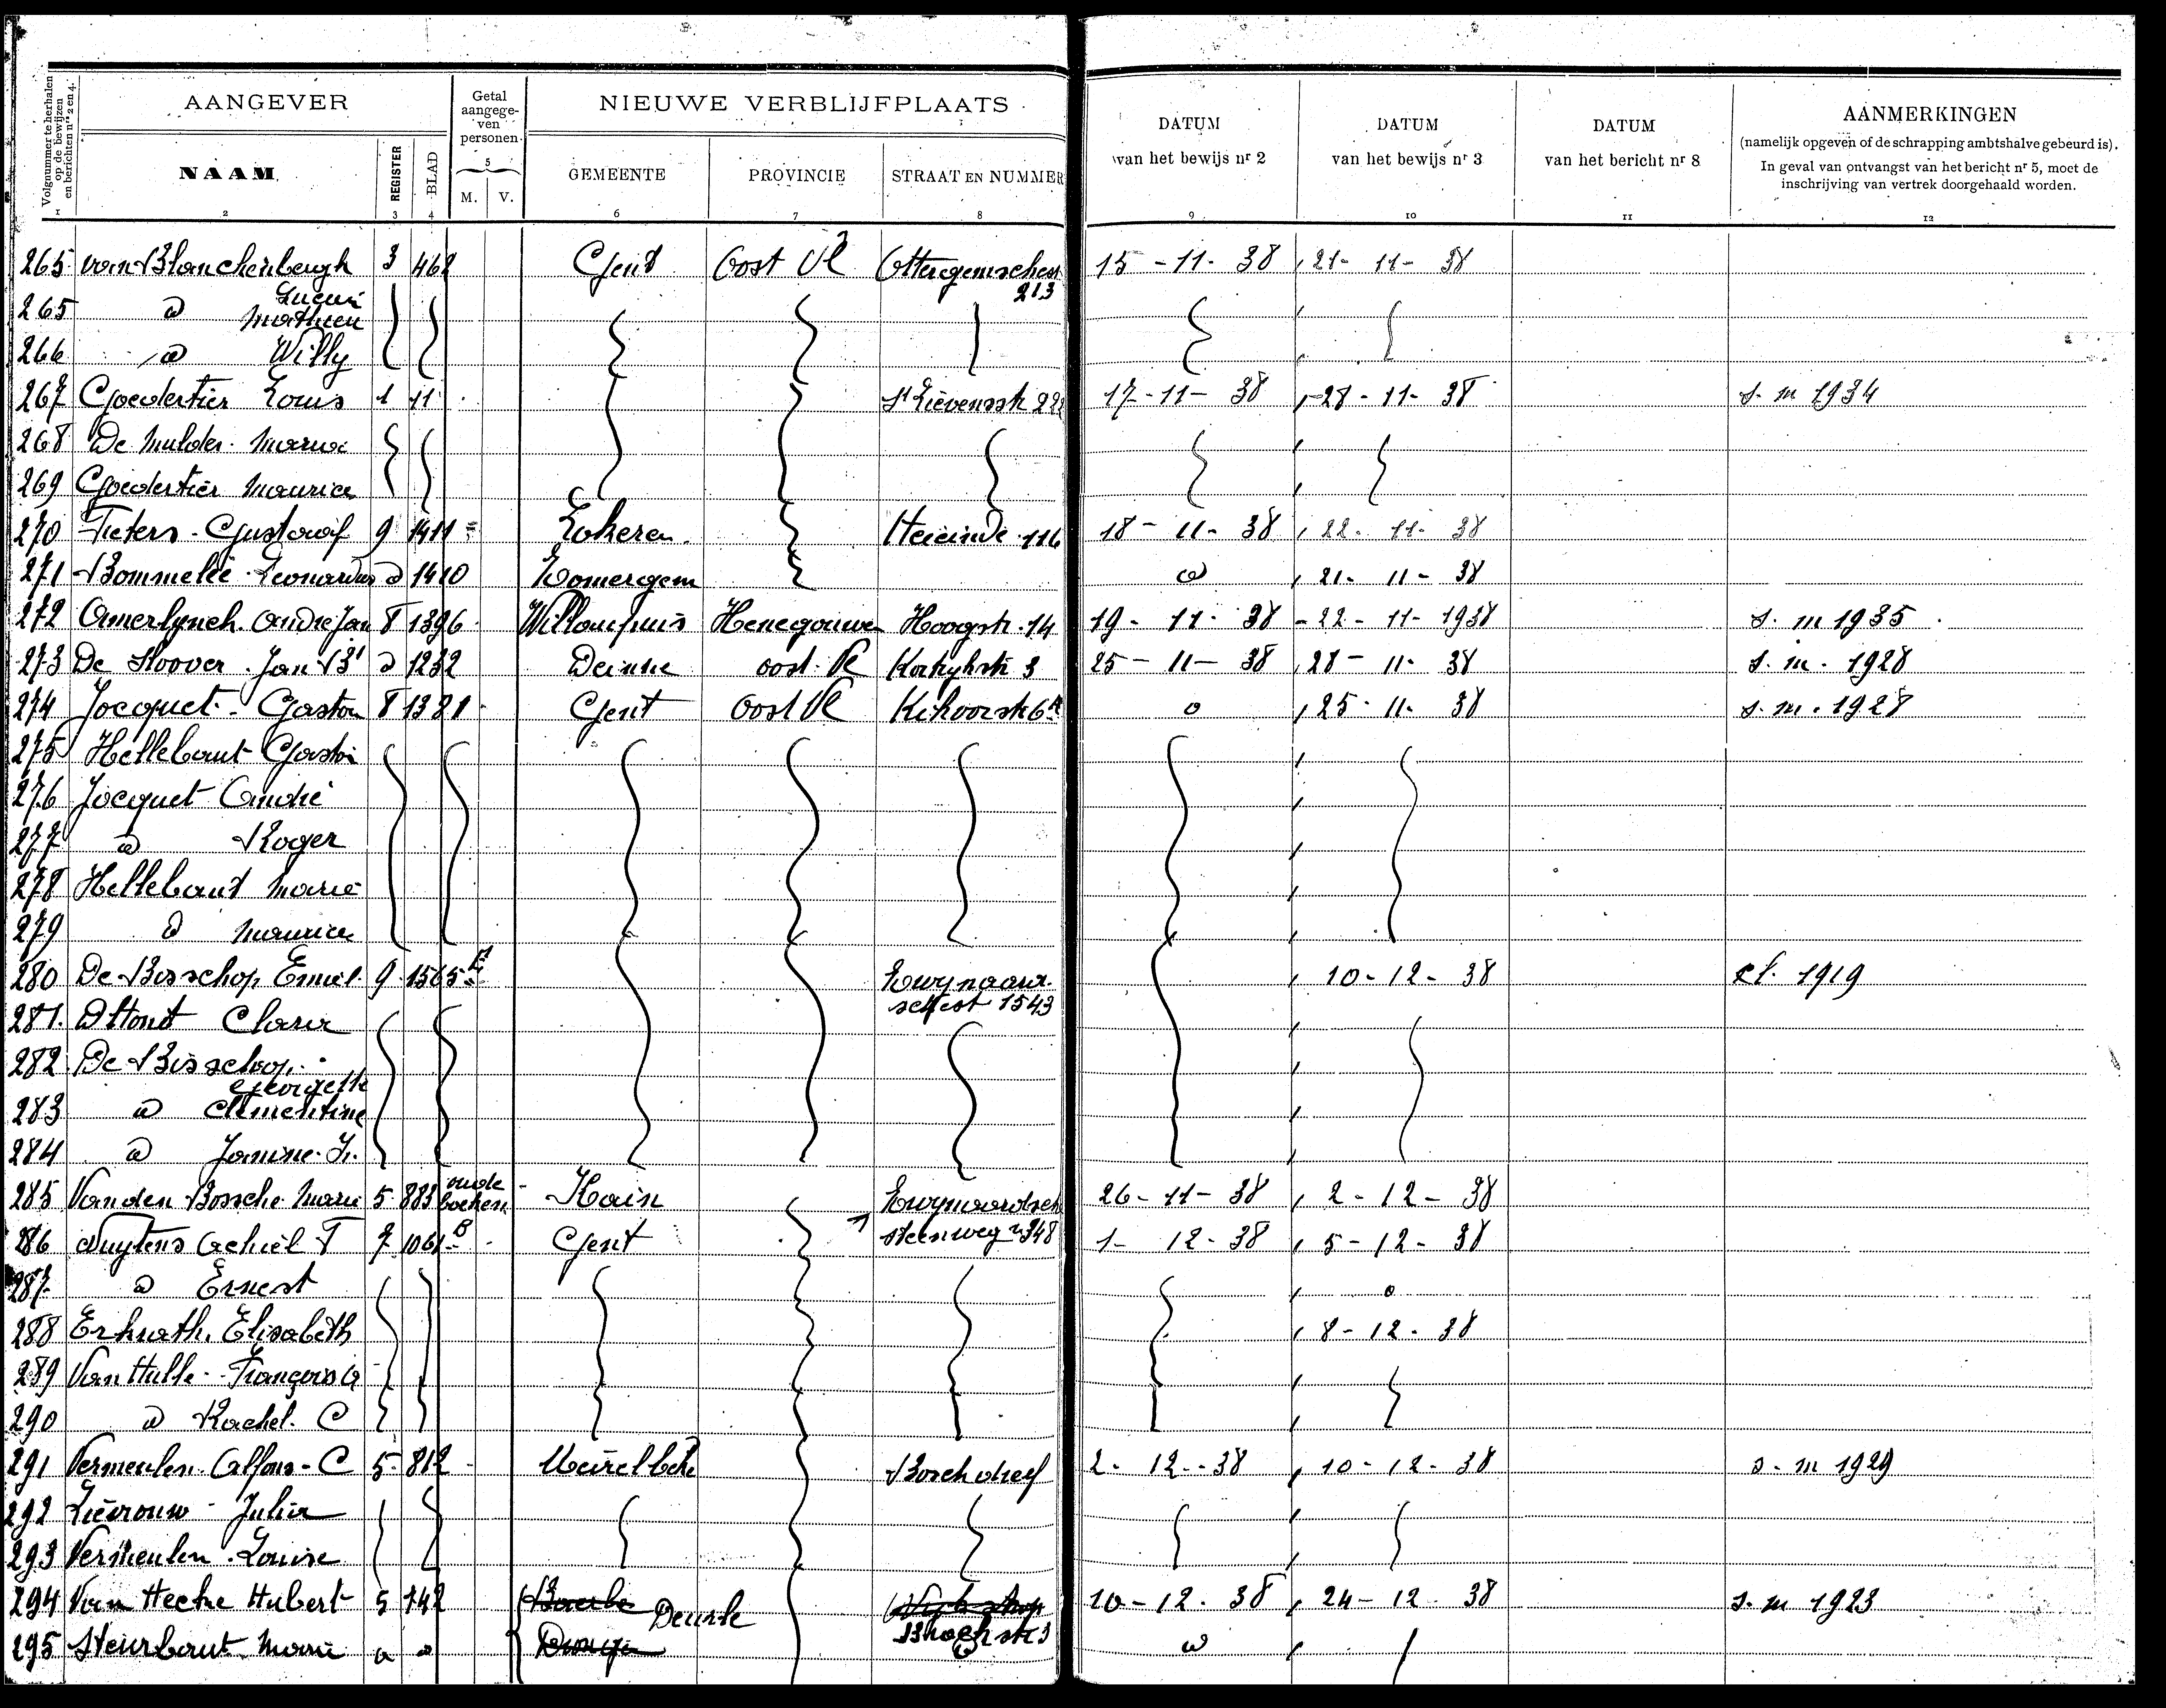 Volgnummer te herhalen op de bewijzen en berichten nrs 2 en 4.
AANGEVER
Getal aangegeven personen.
NIEUWE VERBLIJFPLAATS
DATUM van het bewijs nr 2
DATUM van het bewijs nr 3
DATUM van het bericht nr 8
AANMERKINGEN
(namelijk opgeven of de schrapping ambtshalve gebeurd is).
In geval van ontvangst van het bericht nr 5, moet de inschrijving van vertrek doorgehaald worden.
NAAM REGISTER BLAD M. V. GEMEENTE PROVINCIE STRAAT EN NUMMER
1 2 3 4 5 6 7 8 9 10 11 12
265 van Blanckenbergh 3 468 Gent Oost Vl 15 - 11 - 38 21 - 11 - 38
213
265 d Mathieu
266 d Willy
267 Goedertier Louis 1 11 St Lievensstr 17 - 11 - 38 28 - 11 - 38 s. m 1934
268 De Mulder Maria
269 Goedertier Maurice
270 Gustaaf 9 1411 Lokeren Heieinde 116 18 - 11 - 38 22 - 11 - 38
271 Bommelie Leonardus d 1410 Zomergem d 21 - 11 - 38
272 Amerlynck André Jan 8 1396 Willaupuis Henegouwen Hoogstr. 14 19 - 11 - 38 22 - 11 - 1938 s. m 1935
273 De Hoover Jan Bt d 1232 Deinze oost. Vl Kortrijkstr 3 25 - 11 - 38 28 - 11 - 38 s. m. 1928
274 Jocquet Gaston 8 1381 Gent Oost Vl d 25 - 11 - 38 s. m. 1928
275 Hellebaut
276 Jocquet André
277 d Roger
278 Hellebaut Marie
279 d Maurice
280 De Bisschop Emiel 9 1565 10 - 12 - 38 Kl. 1919
1543
281 D'Hont Clara
282 De Bisschop
Georgette
283 d Clementine
284 d Janine
285 Van den Bossche Marie 5 883 oude boeken Hain 26 - 11 - 38 2 - 12 - 38
286 Nuytens Achiel F 7 1061 Gent steenweg 348 1 - 12 - 38 5 - 12 - 38
287 d Ernest d
288 Elisabeth 8 - 12 - 38
289 Van Hulle François
290 d Rachel C
291 Vermeulen Alfons C 5 812 Meirelbeke Boschdreef 2 - 12 - 38 10 - 12 - 38 s. m 1929
292 Lievrouw Julia
293 Vermeulen Louise
294 Van Hecke Hubert 5 742 Deurle 10 - 12 - 38 24 - 12 38 s. m 1923
295 Steurbaut Marie d d d